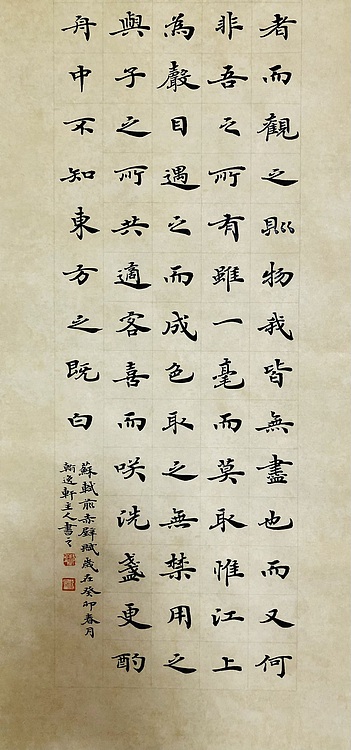 者而觀之則物我皆無盡也而又何
非吾之所有雖一毫而莫取惟江上
為聲目遇之而成色取之無禁用之
與子之所共適客喜而咲洗盞更酌
舟中不知東方之既白
蘇軾前赤壁賦歲在癸卯春月
翰逸軒主人書之